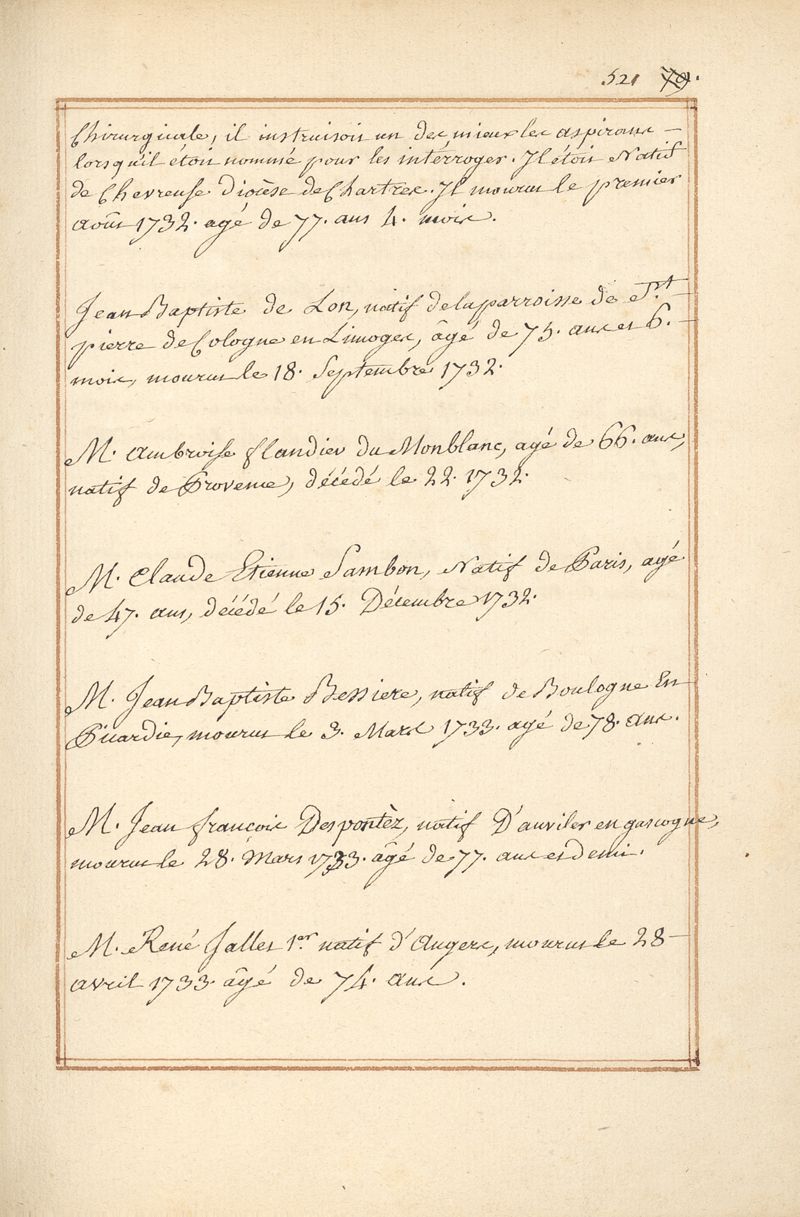 521 79.
Chirurgicale, il instruisoit un des mieux les aspirans –
lorsqu'il étoit nommé pour les intérroger. Il étoit Natif
de Chevreuse Diocèse de Chartres. Il mourut le premier
Août 1732. agé de 77. ans 4. mois.
Jean Baptiste de Lon, natif de la parroisse de St.
pierre de Cologne en Limoges, âgé de 75. ans et 6.
mois, mourut le 18. Septembre 1732.
M. Ambroise flandier du Monblanc, agé de 66. ans,
natif de Provence, décédé le 22. 1732.
M. Claude Etienne Sambon, Natif de Paris, agé
de 47. ans, décédé le 15. Décembre 1732.
M. Jean Baptiste Bessiere, natif de Boulogne En
Picardie, mourut le 3. Mars 1733. agé de 78. ans.
M. Jean françois Despontèz, natif D'auviler en gascogne,
mourut le 28. Mars 1733. âgé de 77. ans et demi.
M. René Jallet 1er natif d'Angers, mourut le 28
avril 1733. âgé de 74. ans.